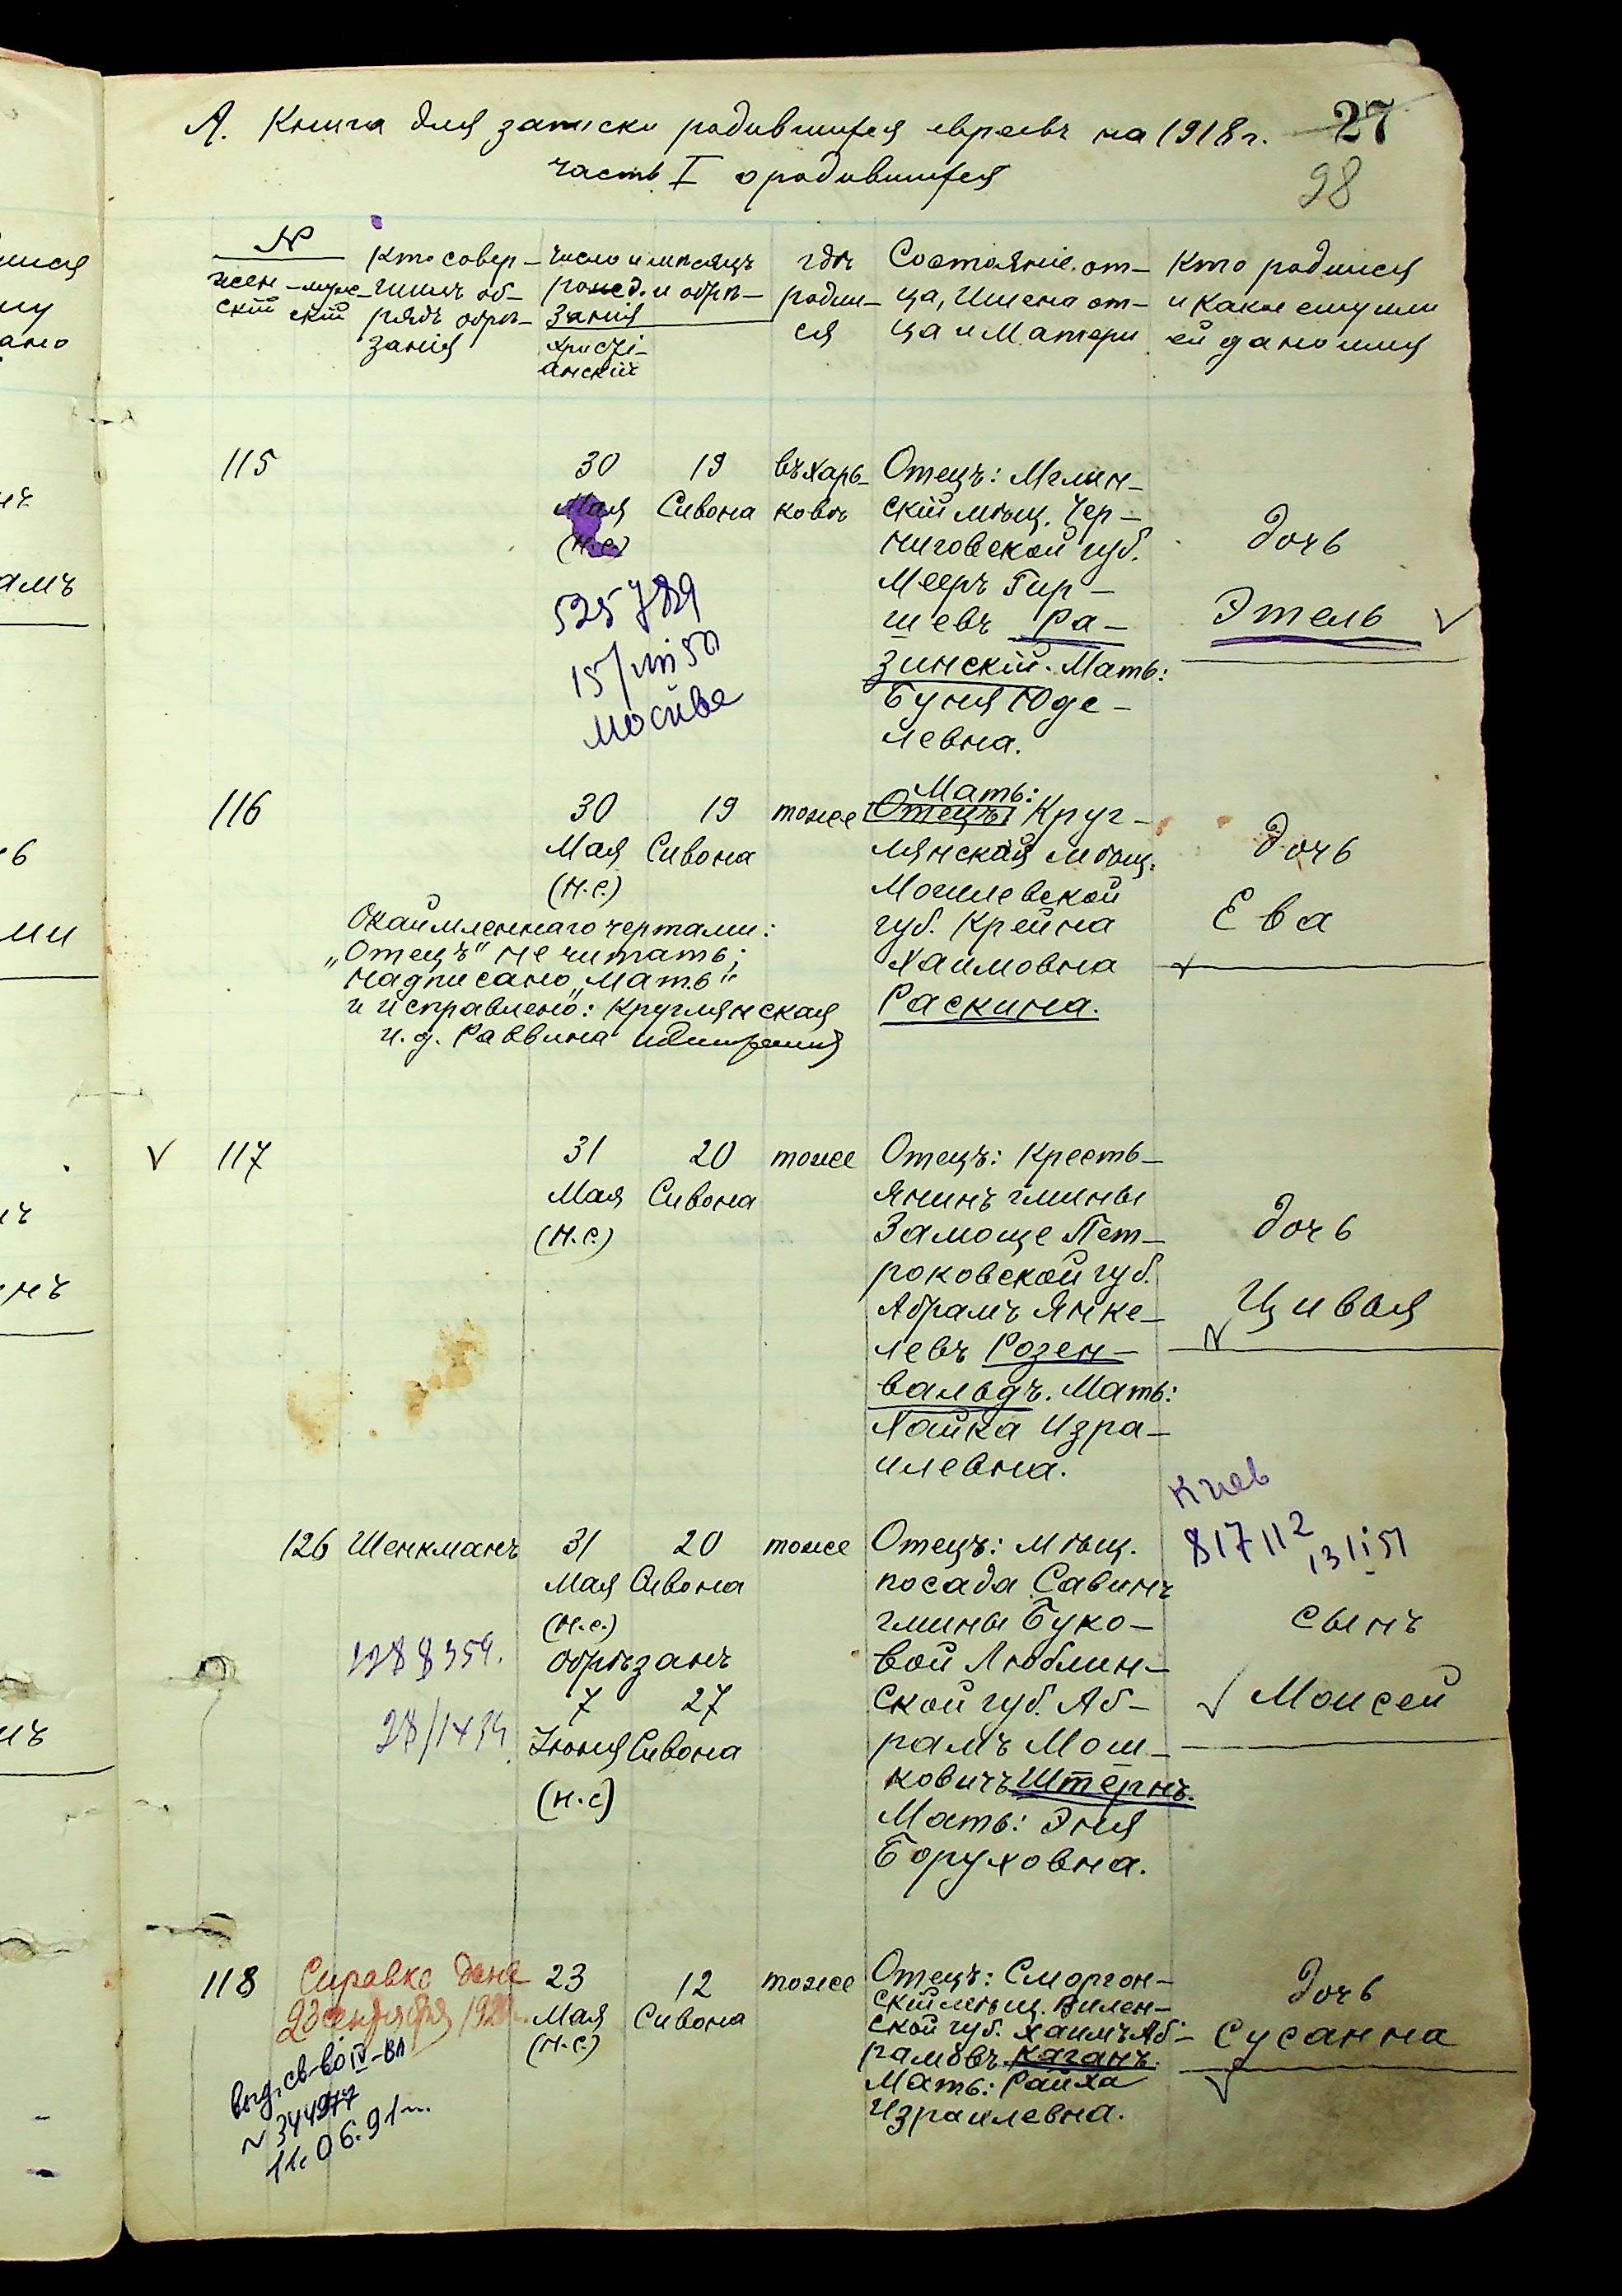 А. Книга для записки родившихся евреевъ на 1918 г. 27
часть I о родившихся
98
№
жен-ский муж-ский
Кто совер-шилъ об-рядъ обрѣ-занія
Число и мѣсяцъ рожд. и обрѣ-занія
христі-анскій
гдѣ родил-ся
Состояніе от-ца, Имена от-ца и Матери
Кто родился и какое ему или ей дано имя
115
30 19
Мая Сивона
(н.с.)
въ Харь-
ковѣ
Отецъ: Мглин-
скій мѣщ. Чер-
ниговской губ.
Мееръ Гир-
шевъ Ра-
зинскій. Мать:
Буня Юде-
левна.
дочь
Этель
525789
Москва
116
30 19
Мая Сивона
(н.с.)
тоже
Мать:
Отецъ: Круг-
лянская мѣщ.
Могилевской
губ. Крейна
Хаимовна
Раскина.
дочь
Ева
Окаймленнаго чертами:
„Отецъ" не читать;
надписано „Мать"
и исправлено: Круглянская
и. д. Раввина
117
31 20
Мая Сивона
(н.с.)
тоже
Отецъ: Кресть-
янинъ гмины
Замоще Пет-
роковской губ.
Абрамъ Янке-
левъ Розен-
вальдъ. Мать:
Хайка Изра-
илевна.
дочь
Цивья
126
Шенкманъ
31 20
Мая Сивона
(н.с.)
обрѣзанъ
7 27
Іюня Сивона
(н.с)
тоже
Отецъ: мѣщ.
посада Савинъ
гмины Буко-
вой Люблин-
ской губ. Аб-
рамъ Мош-
ковичъ Штернъ.
Мать: Эня
Боруховна.
Киев
817112
сынъ
Моисей
118
Справка дана
23 сентября
выд. св-во IV-ВЛ
№ 344977
11.06.91 г.
23 12
Мая Сивона
(н.с.)
тоже
Отецъ: Сморгон-
скій мѣщ. Вилен-
ской губ. Хаимъ Аб-
рамовъ Каганъ.
Мать: Райха
Израилевна.
дочь
Сусанна